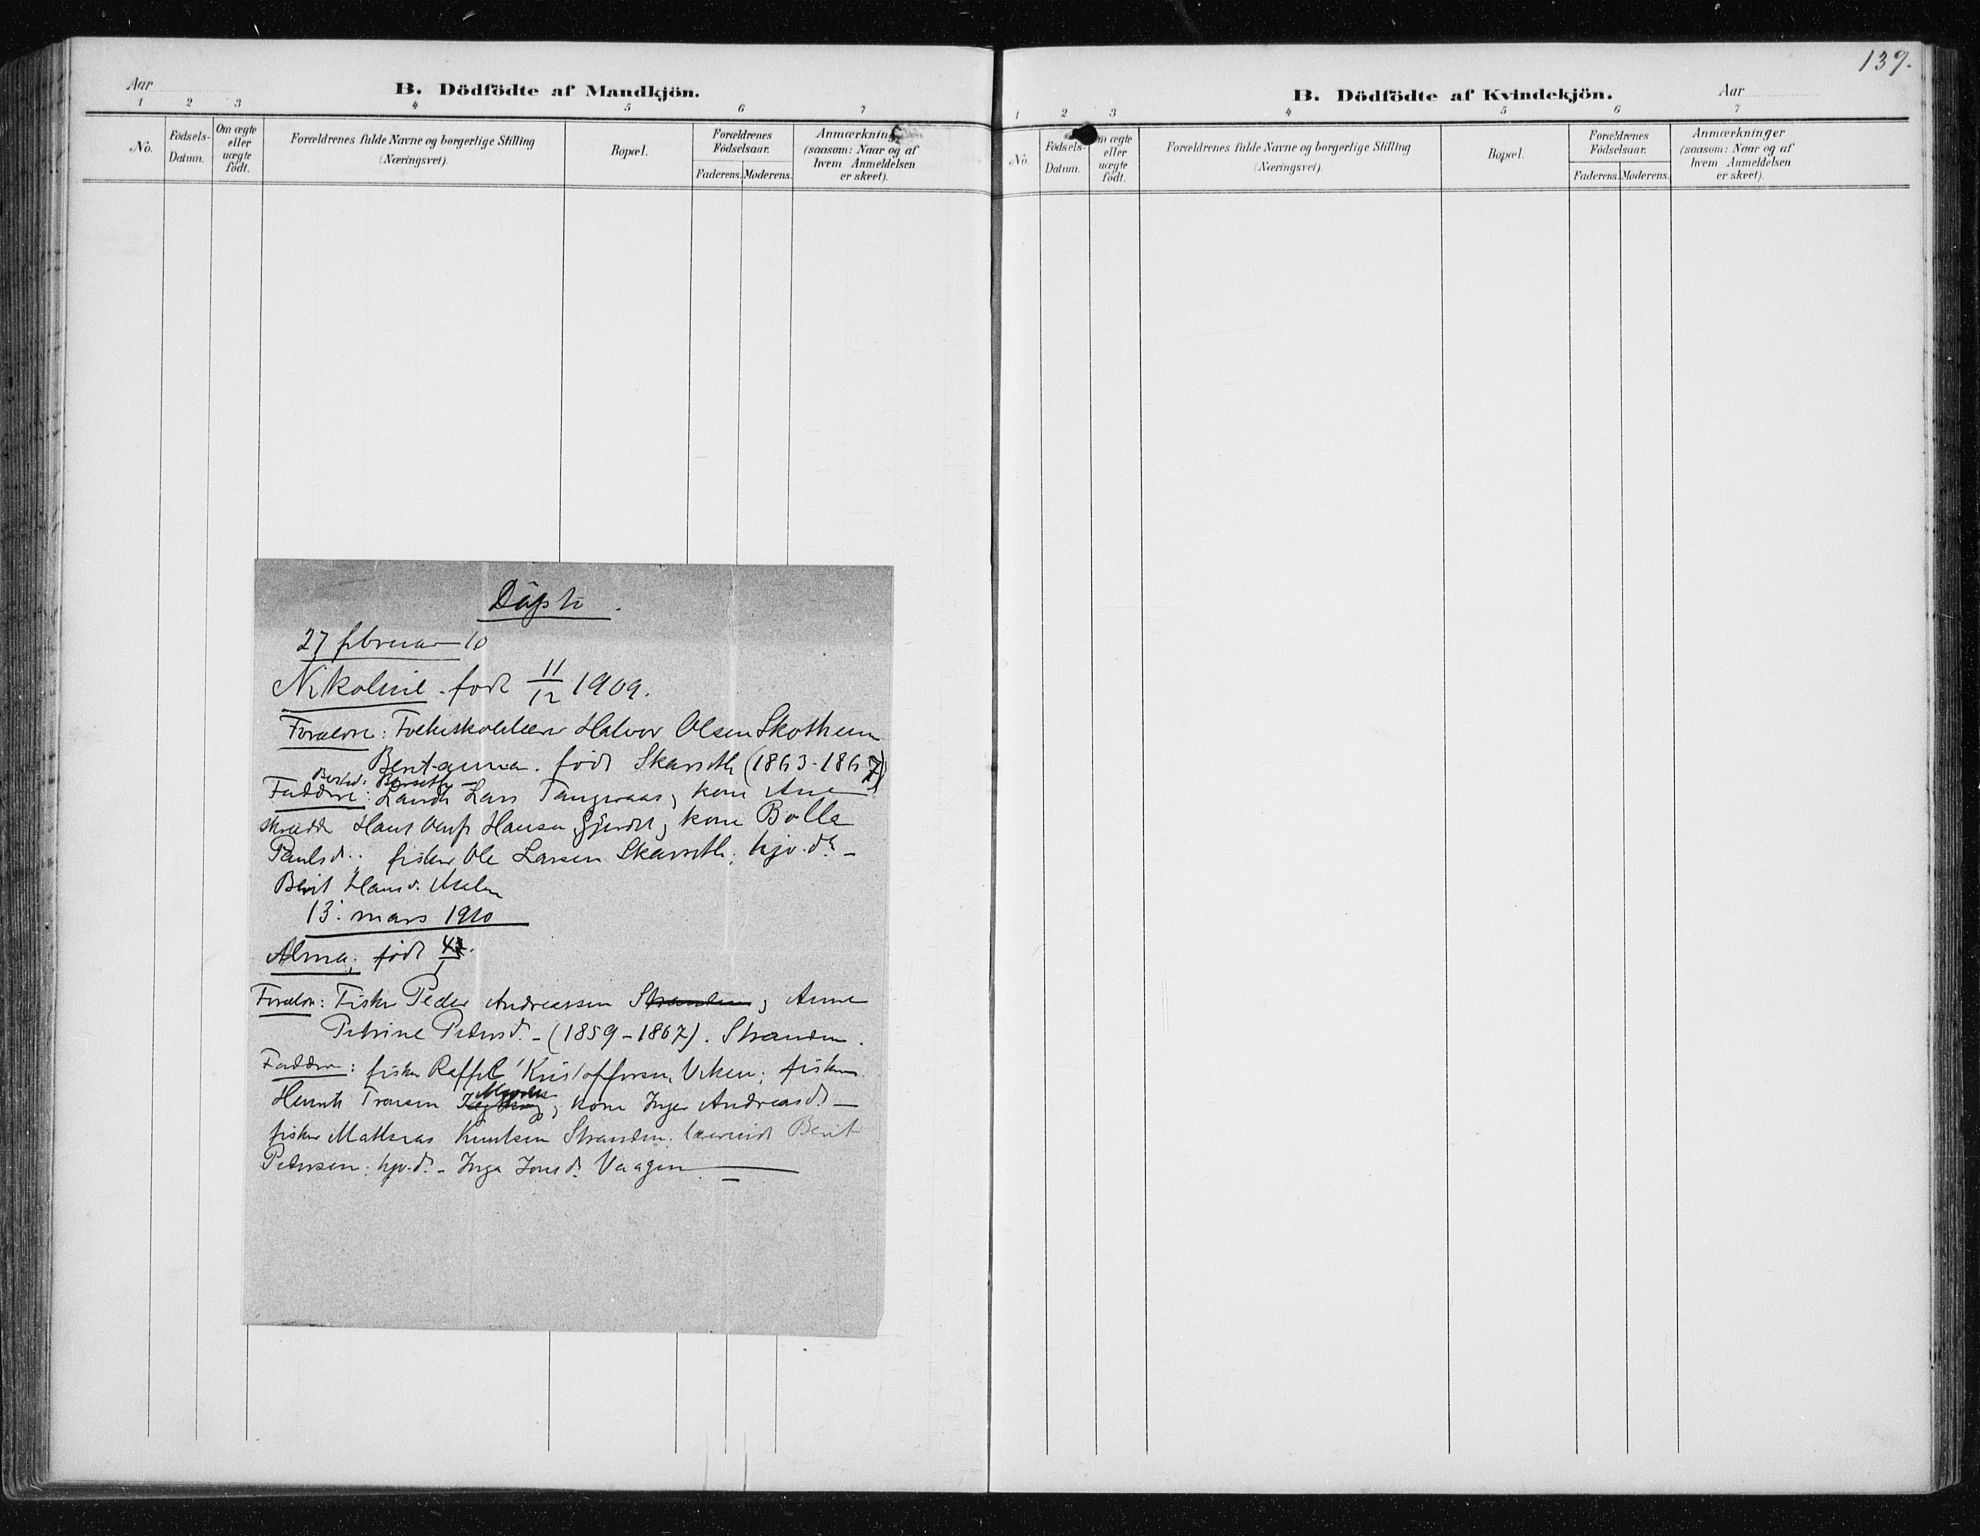 Aar
B. Dödfödte af Mandkjön.
1 2 3 4 5 6 7
No.
Födsels-
Datum.
Om ægte
eller
uægte
födt.
Forældrenes fulde Navne og borgerlige Stilling
(Næringsvei).
Bopæl.
Forældrenes
Födselsaar.
Faderens. Moderens.
(saasom: Naar og af
hvem Anmeldelsen
er skeet).
Döpte.
27 februar 10
Nikoline. född 11/12 1909.
Forældre: Halvor Olsen Skotheim
Beritanna. född Skarseth (1863-1867)
Faddere: Lars Tangeraas, kone Ane
Hans Hansen Gjerdet, kone Bolla
Paulsd.; fisker Ole Larsen Skarseth;
Berit Hansd. Malen
13. mars 1910
Alma, född
Foreldre: Fisker Peder Andreassen Stranden, Anne
Petrine Pedersd. - (1859-1867). Stranden.
Faddere: fisker Kristoffersen, Viken; fisker
Henrik Tronsen kone Inger Andreasd. -
fisker Mathias Knutsen Stranden. Berit
Petersen. - Inga Jonsd. Vaagen.
139.
B. Dödfödte af Kvindekjön.
Aar
1 2 3 4 5 6 7
No.
Födsels-
Datum.
Om ægte
eller
uægte
födt.
Forældrenes fulde Navne og borgerlige Stilling
(Næringsvei).
Bopæl.
Forældrenes
Födselsaar.
Faderens. Moderens.
Anmærkninger
(saasom: Naar og af
hvem Anmeldelsen
er skeet).